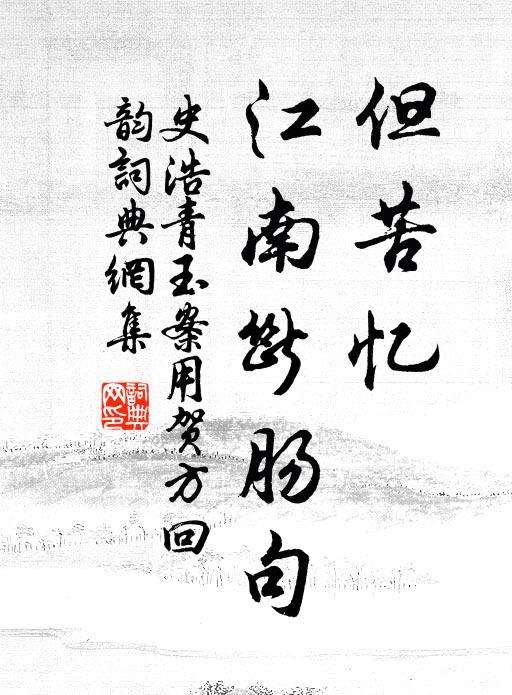 但苦忆
江南断肠句
史浩青玉案用贺方回
韵词典網集
詞典网印